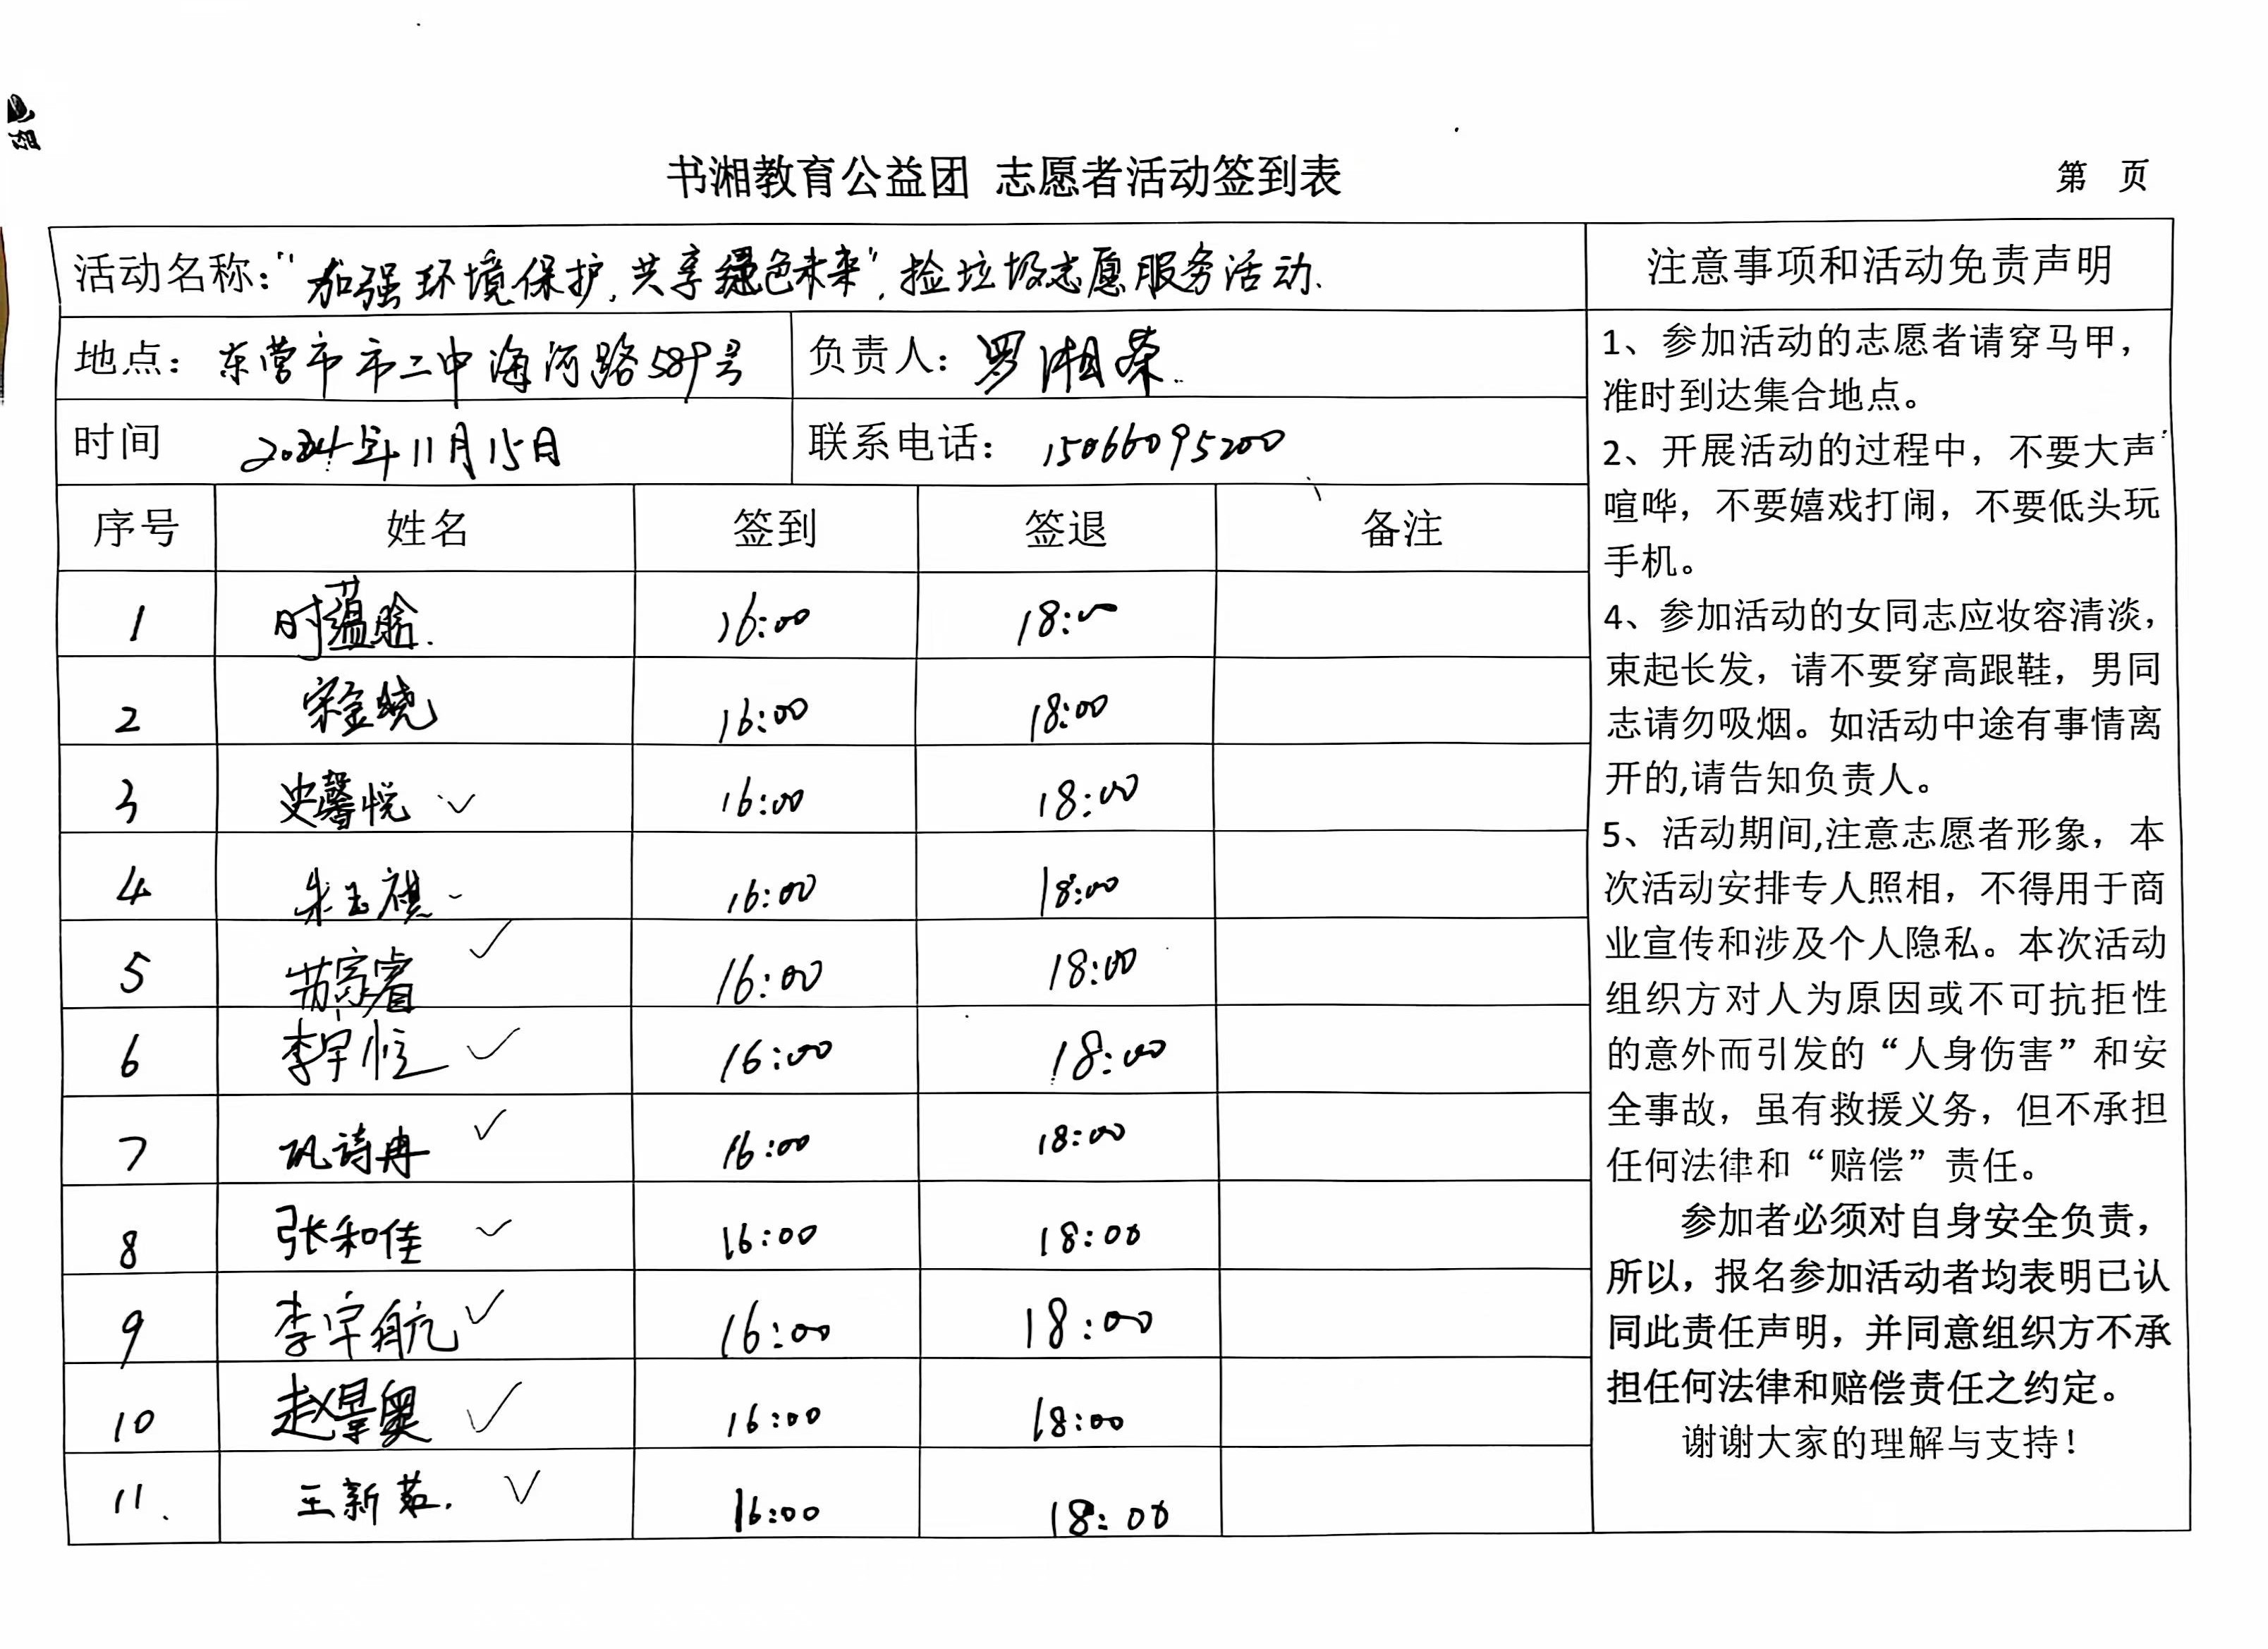 书湘教育公益团 志愿者活动签到表
第 页
活动名称：“加强环境保护，共享绿色未来”，捡垃圾志愿服务活动.
注意事项和活动免责声明
地点：东营市市二中海河路589号 负责人：罗湘荣
时间 2024年11月15日 联系电话：15066095200
序号 姓名 签到 签退 备注
1 时蕴 16:00 18:00
2 宋金晓 16:00 18:00
3 史馨悦 ✓ 16:00 18:00
4 朱玉祺 16:00 18:00
5 苏家睿 ✓ 16:00 18:00
6 李宇恒 ✓ 16:00 18:00
7 巩诗冉 ✓ 16:00 18:00
8 张和佳 ✓ 16:00 18:00
9 李宇航 ✓ 16:00 18:00
10 赵奥 ✓ 16:00 18:00
11. 王新茹. ✓ 16:00 18:00
1、参加活动的志愿者请穿马甲，
准时到达集合地点。
2、开展活动的过程中，不要大声
喧哗，不要嬉戏打闹，不要低头玩
手机。
4、参加活动的女同志应妆容清淡，
束起长发，请不要穿高跟鞋，男同
志请勿吸烟。如活动中途有事情离
开的,请告知负责人。
5、活动期间,注意志愿者形象，本
次活动安排专人照相，不得用于商
业宣传和涉及个人隐私。本次活动
组织方对人为原因或不可抗拒性
的意外而引发的“人身伤害”和安
全事故，虽有救援义务，但不承担
任何法律和“赔偿”责任。
参加者必须对自身安全负责，
所以，报名参加活动者均表明已认
同此责任声明，并同意组织方不承
担任何法律和赔偿责任之约定。
谢谢大家的理解与支持！